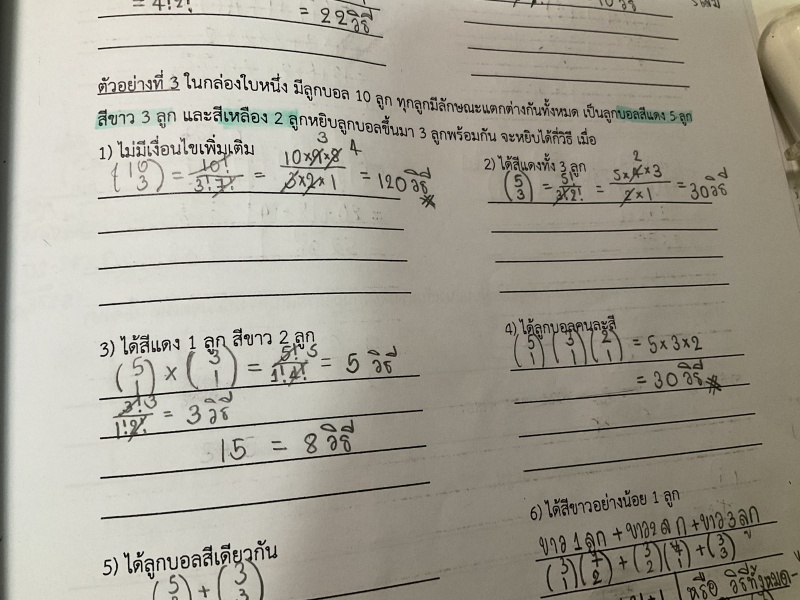 = 22 วิธี
ตัวอย่างที่ 3 ในกล่องใบหนึ่ง มีลูกบอล 10 ลูก ทุกลูกมีลักษณะแตกต่างกันทั้งหมด เป็นลูกบอลสีแดง 5 ลูก
สีขาว 3 ลูก และสีเหลือง 2 ลูกหยิบลูกบอลขึ้นมา 3 ลูกพร้อมกัน จะหยิบได้กี่วิธี เมื่อ
1) ไม่มีเงื่อนไขเพิ่มเติม
(10 3) = 10!/3!7! = 10×9×8/3×2×1 = 120 วิธี
3 4
2) ได้สีแดงทั้ง 3 ลูก
(5 3) = 5!/3!2! = 5×4×3/2×1 = 30 วิธี
2
3) ได้สีแดง 1 ลูก สีขาว 2 ลูก
(5 1) × (3 1) = 5!/1!4! = 5 วิธี
5
3!/1!2! = 3 วิธี
3
15 = 8 วิธี
4) ได้ลูกบอลคนละสี
(5 1)(3 1)(2 1) = 5×3×2
= 30 วิธี
5) ได้ลูกบอลสีเดียวกัน
6) ได้สีขาวอย่างน้อย 1 ลูก
ขาว 1 ลูก + ขาว 2 ลูก + ขาว 3 ลูก
(3 1)(7 2) + (3 2)(7 1) + (3 3)
หรือ วิธีทั้งหมด -